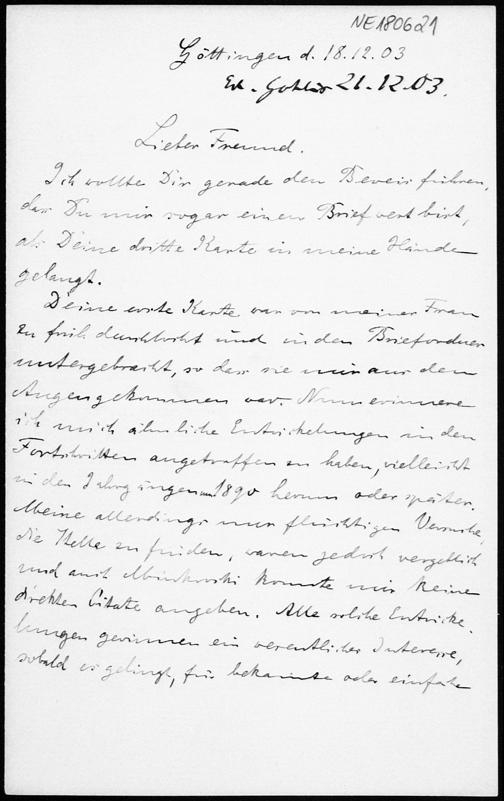 NE180621
Göttingen d. 18.12.03
21.12.03.
Lieber Freund.
Ich wollte Dir gerade den Beweis führen,
dass Du mir sogar einen Brief wert bist,
als Deine dritte Karte in meine Hände
gelangt.
Deine erste Karte war von meiner Frau
zu früh durchlocht und in den Briefordner
untergebracht, so dass sie mir aus den
Augen gekommen war. Nun erinnere
ich mich ähnliche Entwickelungen in den
Fortschritten angetroffen zu haben, vielleicht
in den Jahrgängen um 1890 herum oder später.
Meine allerdings nur flüchtigen Versuche,
die Stelle zu finden, waren jedoch vergeblich
und auch Minkowski konnte mir keine
direkten Citate angeben. Alle solche Entwicke-
lungen gewinnen ein wesentliches Interesse,
sobald es gelingt, für bekannte oder einfache